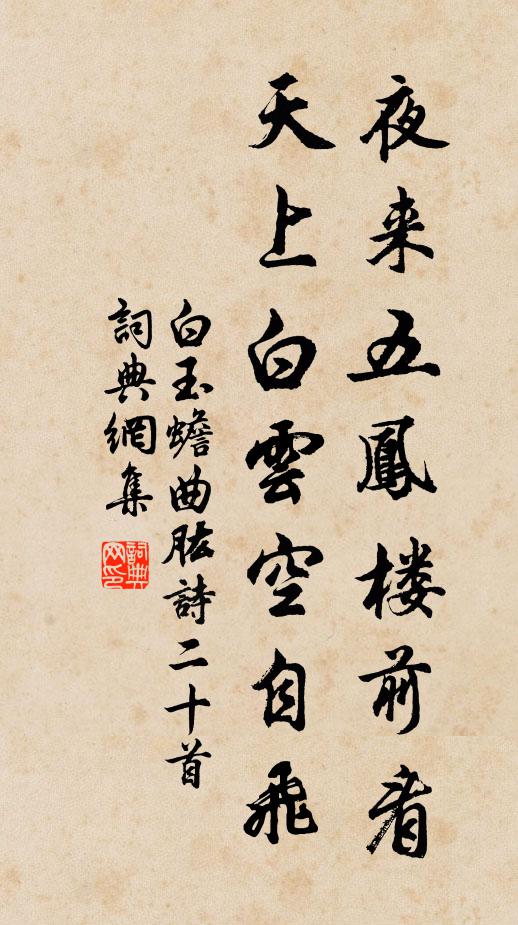 夜来五鳳楼前看
天上白雲空自飛
白玉蟾曲肱詩二十首
詞典網集
詞典网印